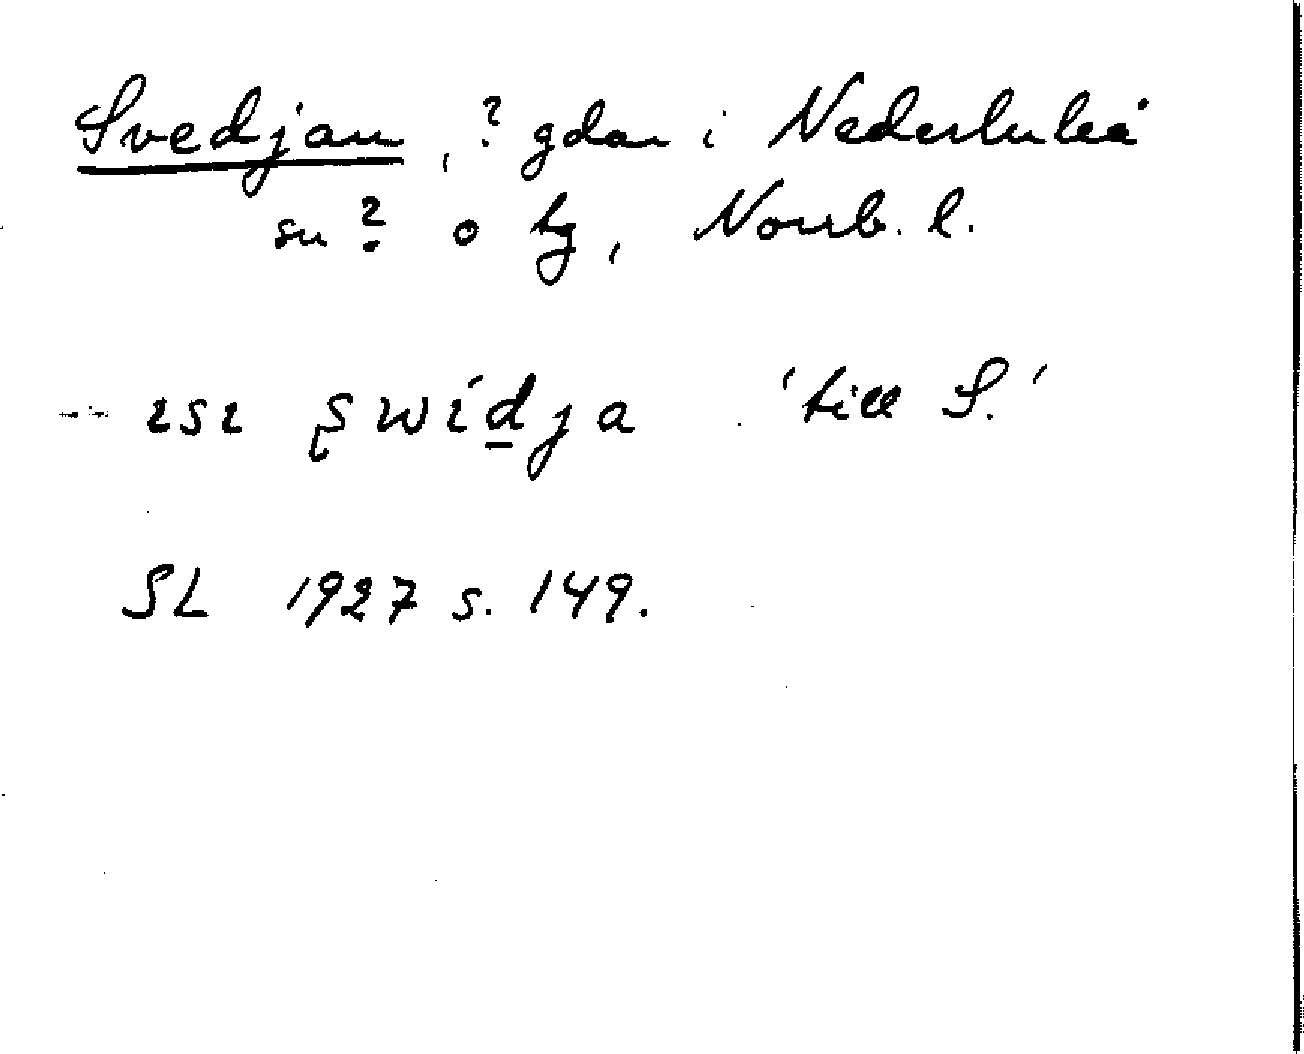 Svedjan, ? gdar i Nederluleå
sn ? o tg, Norrb. l.
ısı swídja 'till S.'
SL 1927 s. 149.